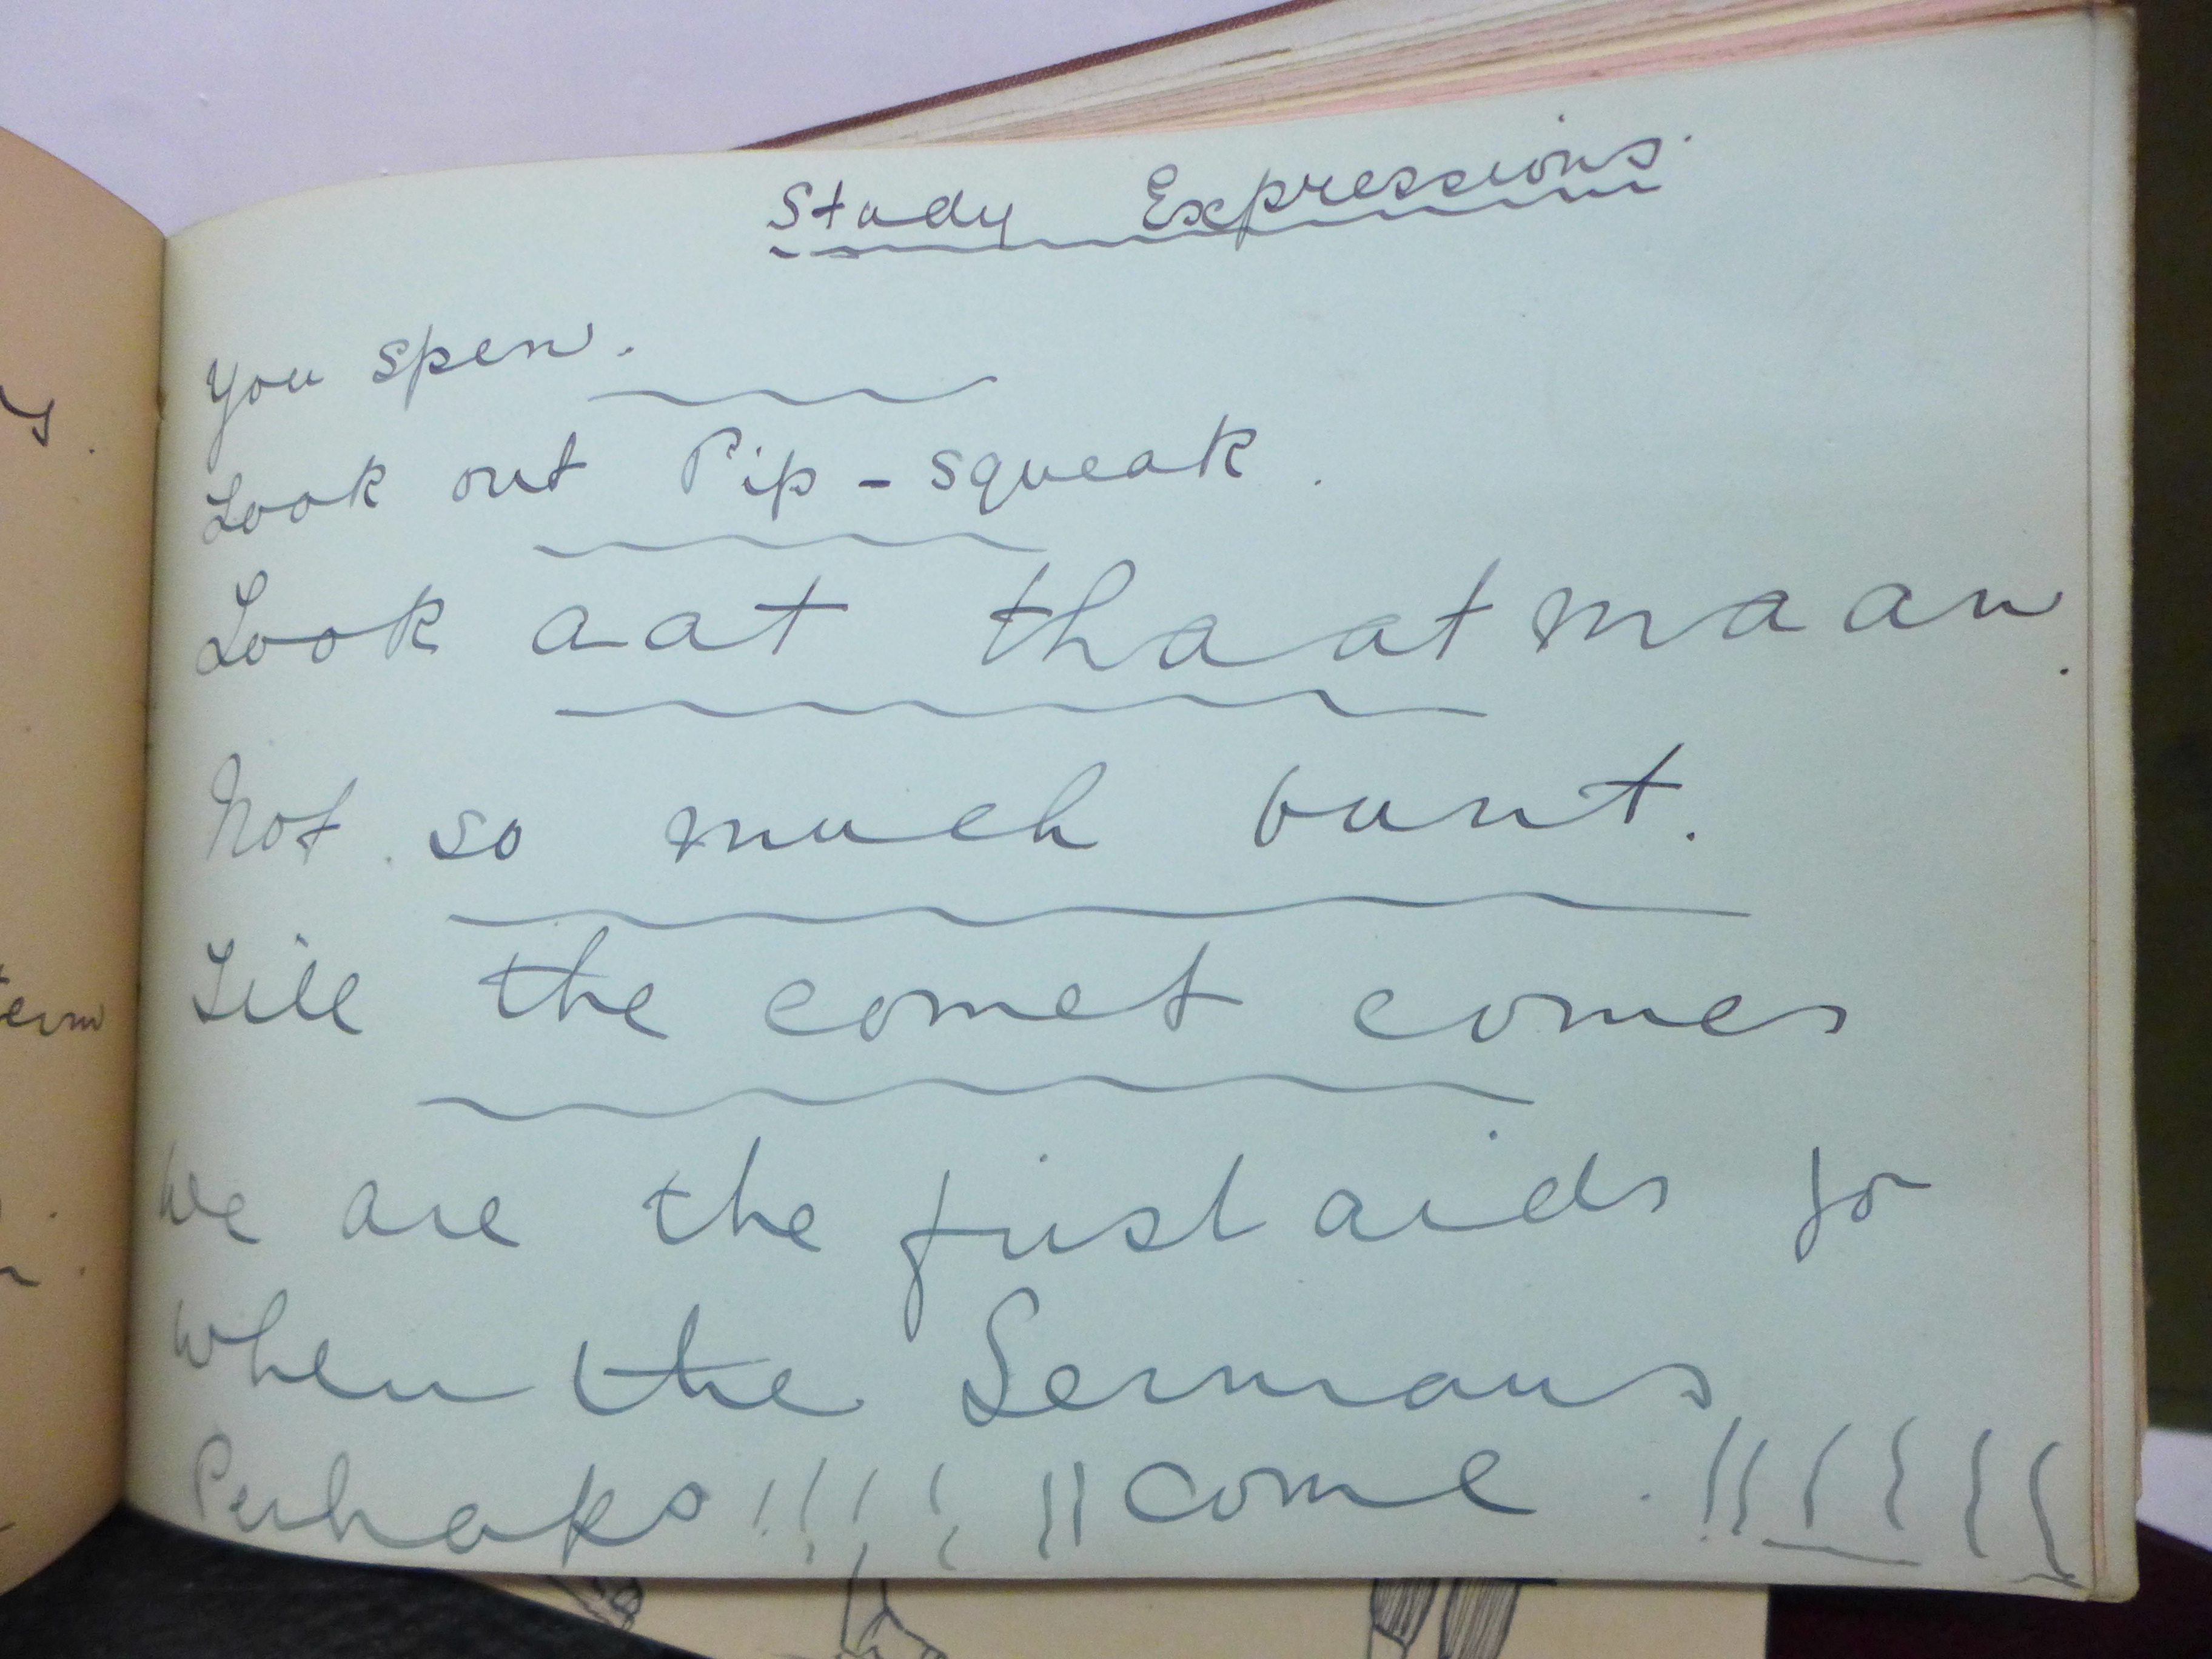 Study Expressions.
You spen.
Look out Pip-squeak.
Look aat thaat maan.
Not so much bunt.
Till the comet comes
We are the first aids for
when the Germans
Perhaps!!!! !! come. !!!!!!